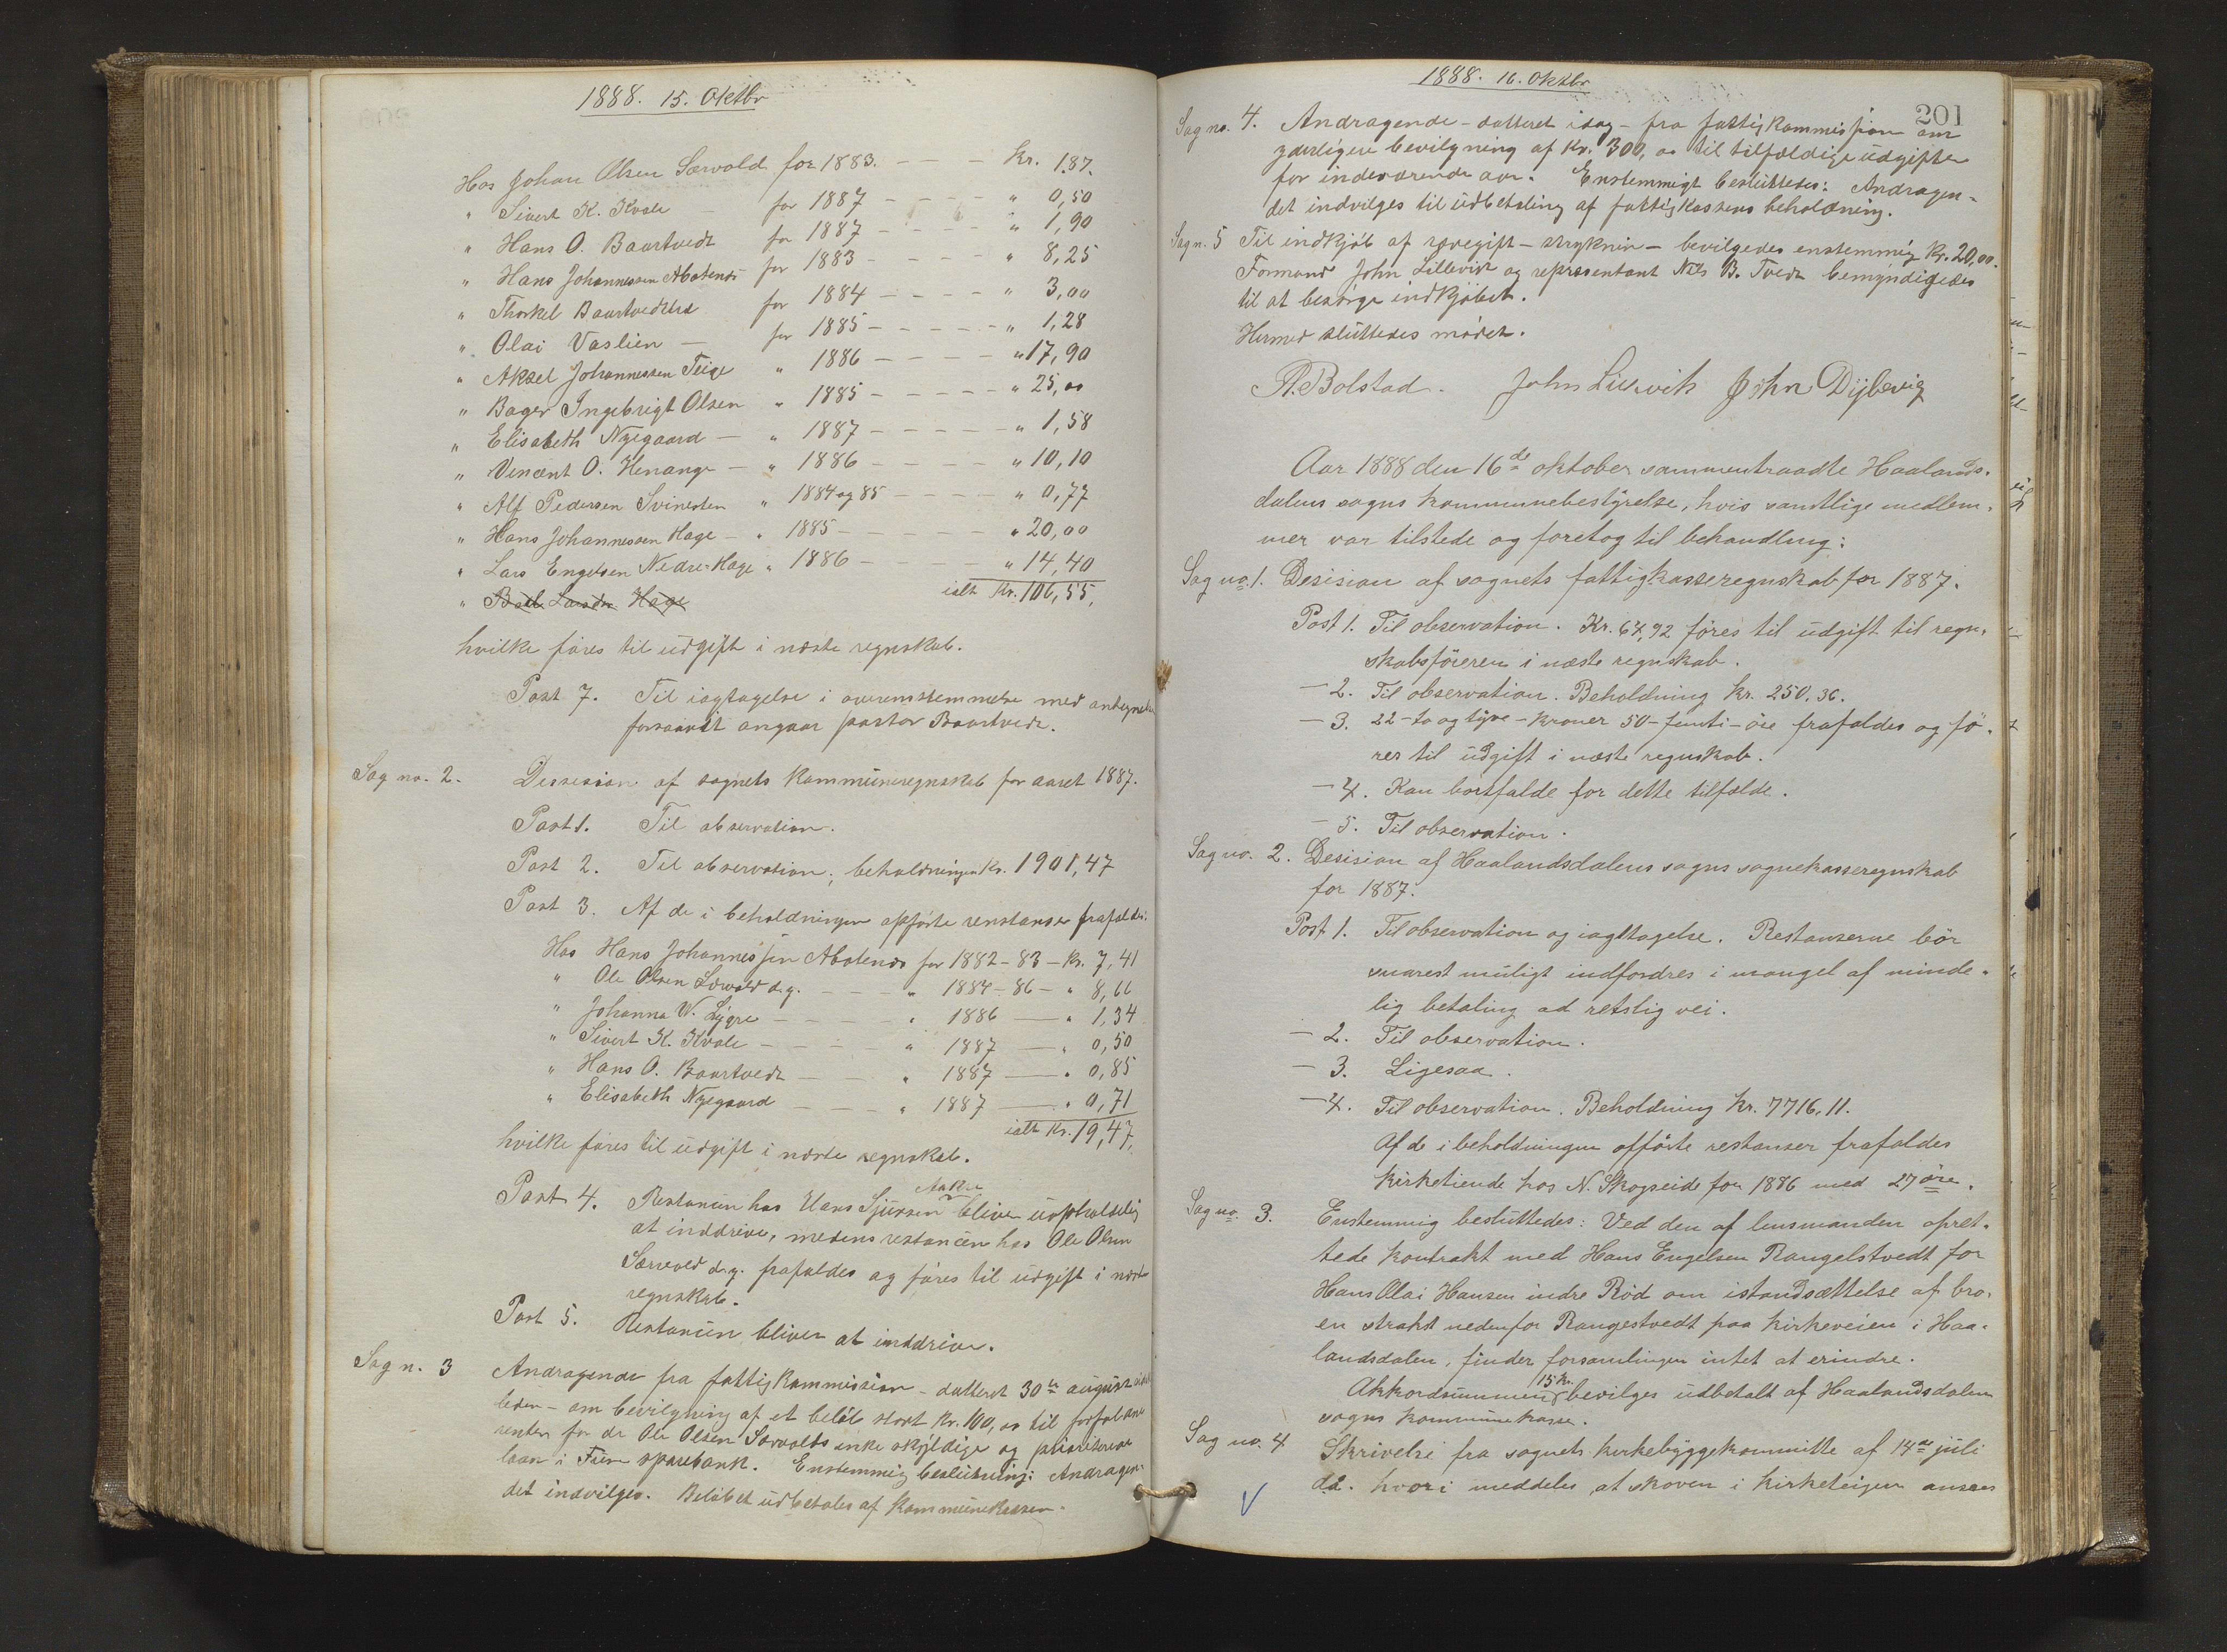 1888. 15. Oktbr
Hos Johan Olsen Særvold for 1883. — — — Kr. 1.87.
" Sivert K. Kvale — for 1887 — — — " 0,50
" Hans O. Baartvedt for 1887 — — — " 1,90
" Hans Johannessen Abotenæs for 1883 — — — " 8,25
" Thorkel Baartvedteid for 1884 — — — " 3,00
" Olai Vaslien — for 1885 — — — " 1,28
" Aksel Johannessen Teige " 1886 — — — " 17,90
" Bager Ingebrigt Olsen " 1885 — — — " 25,00
" Elisabeth Nygaard — " 1887 — — — " 1,58
" Vincent O. Henange — " 1886 — — — " 10,10
" Alf Pedersen Svinesten " 1884 og 85 — — — " 0,77
" Hans Johannessen Hage — " 1885 — — — " 20,00
" Lars Engelsen Nedre-Hage " 1886 — — — " 14,40
" Larsen Hage ialt Kr. 106,55,
hvilke føres til udgift i næste regnskab.
Post 7. Til iagtagelse i overensstemmelse med
forsaavidt angaar pastor Baartvedt.
Sag no. 2. Dessision af sognets kommuneregnskab for aaret 1887.
Post 1. Til observation.
Post 2. Til observation; beholdningen Kr. 1901,47
Post 3. Af de i beholdningen opførte restanser frafaldes:
Hos Hans Johannessen Abotenæs for 1882-83 — Kr. 7,41
" Ole Olsen Særvold d.y. — — " 1884-86 — " 8,66
" Johanna W. Lygre — — — " 1886 — " 1,34
" Sivert K. Kvale — — — " 1887 — " 0,50
" Hans O. Baartvedt — — " 1887 — " 0,85
" Elisabeth Nyegaard — — — " 1887 — " 0,71
ialt Kr. 19,47,
hvilke føres til udgift i næste regnskab.
Aakre
Post 4. Restansen hos Hans Sjursen bliver uopholdelig
at inddrive, medens restancen hos Ole Olsen
Særvold d.y. frafaldes og føres til udgift i næste
regnskab.
Post 5. Restansen bliver at inddrive.
Sag n. 3 Andragende fra fattigkommission — datteret 30te august
leden — om bevilgning af et beløb stort Kr. 100,00 til forfaldne
renter for de Ole Olsen Særvolds enke skyldige og prioriterede
laan i sparebank. Enstemmig beslutning: Andragen-
det indvilges. Beløbet udbetales af kommunekassen.
1888. 16. Oktbr
201
Sag no. 4. Andragende — datteret idag — fra fattigkommission om
yderligere bevilgning af Kr. 300,00 til tilfældige udgifter
for indeværende aar. Enstemmigt besluttedes: Andragen-
det indvilges til udbetaling af fattigkassens beholdning.
Sag n. 5 Til indkjøb af rævegift — stryknin — bevilgedes enstemmig Kr. 20,00.
Formand John Lillevik og repræsentant Nils B. Tvedt bemyndigedes
til at besørge indkjøbet.
Hermed sluttedes mødet.
A. Bolstad. John Liervik John Dybevig
Aar 1888 den 16de oktober sammentraadte Haalands-
dalens sogns kommunebestyrelse, hvis samtlige medlem-
mer var tilstede og foretog til behandling:
Sag no. 1. Desision af sognets fattigkasseregnskab for 1887.
Post 1. Til observation. Kr. 64,92 føres til udgift til regn-
skabsføreren i næste regnskab.
— 2. Til observation. Beholdning Kr. 250,36.
— 3. 22 - to og tyve - kroner 50 - femti - øre frafaldes og fø-
res til udgift i næste regnskab.
— 4. Kan bortfalde for dette tilfælde.
— 5. Til observation.
Sag no. 2. Desision af Haalandsdalens sogns sognekasseregnskab
for 1887.
Post 1. Til observation og iagttagelse. Restanserne bør
snarest muligt indfordres i mangel af minde-
lig betaling ad retslig vei.
— 2. Til observation.
— 3. Ligesaa.
— 4. Til observation. Beholdning Kr. 7716,11.
Af de i beholdningen opførte restanser frafaldes
kirketiende hos N. Skogseide for 1886 med 27 øre.
Sag no. 3. Enstemmig besluttedes: Ved den af lensmanden opret-
tede kontrakt med Hans Engelsen Rangelstvedt for
Hans Olai Hansen indre Rød om istandsættelse af bro-
en strakt nedenfor Rangestvedt paa kirkeveien i Haa-
landsdalen, finder forsamlingen intet at erindre.
15 kr.
Akkordsummen bevilges udbetalt af Haalandsdalens
sogns kommunekasse.
Sag no. 4 Skrivelse fra sognets kirkebyggekommitte af 14de juli
d.å. hvori meddeles at skoven i kirketeigen ansees